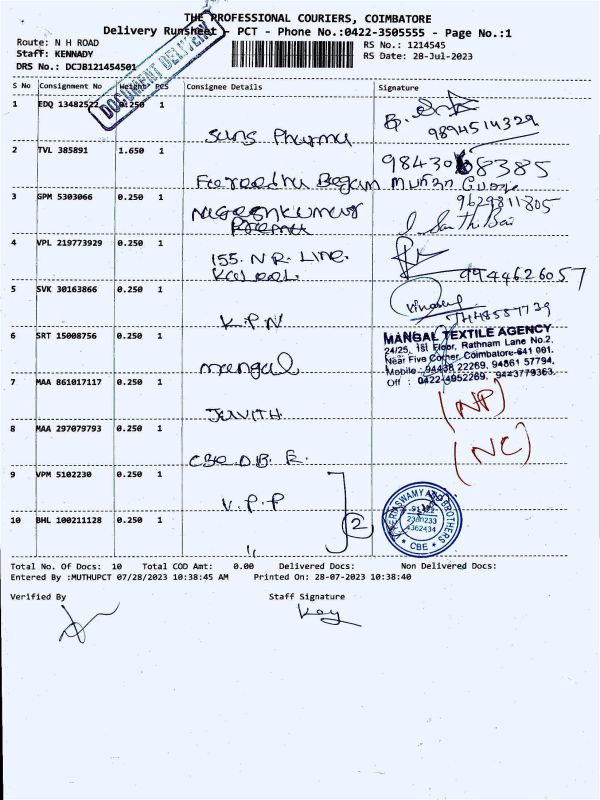 THE PROFESSIONAL COURIERS, COIMBATORE
Delivery Runsheet - PCT - Phone No.:0422-3505555 - Page No.:1
Route: N H ROAD
RS No.: 1214545
Staff: KENNADY
RS Date: 28-Jul-2023
DRS No.: DCJB121454501
DOCUMENT DELIVERY
S No Consignment No Weight PCS Consignee Details Signature
1 EDQ 13482522 0.250 1
Suns Pharma
9894514329
2 TVL 385891 1.650 1
Begam
3 GPM 5303066 0.250 1
9629811805
4 VPL 219773929 0.250 1
155. N R. Line.
9944626057
5 SVK 30163866 0.250 1
K.P.N
6 SRT 15008756 0.250 1
mangal
MANGAL TEXTILE AGENCY
24/25, 1st Floor, Rathnam Lane No.2,
Near Five Corner, Coimbatore-641 001.
Mobile : 94438 22269, 94861 57794,
Off : 0422-4952269, 9443779363,
7 MAA 861017117 0.250 1
(NP)
8 MAA 297079793 0.250 1
(NC)
9 VPM 5102230 0.250 1
V.P.P
2
10 BHL 100211128 0.250 1
"
AND BROTHERS
* CBE *
Total No. Of Docs: 10 Total COD Amt: 0.00 Delivered Docs: Non Delivered Docs:
Entered By :MUTHUPCT 07/28/2023 10:38:45 AM Printed On: 28-07-2023 10:38:40
Verified By Staff Signature